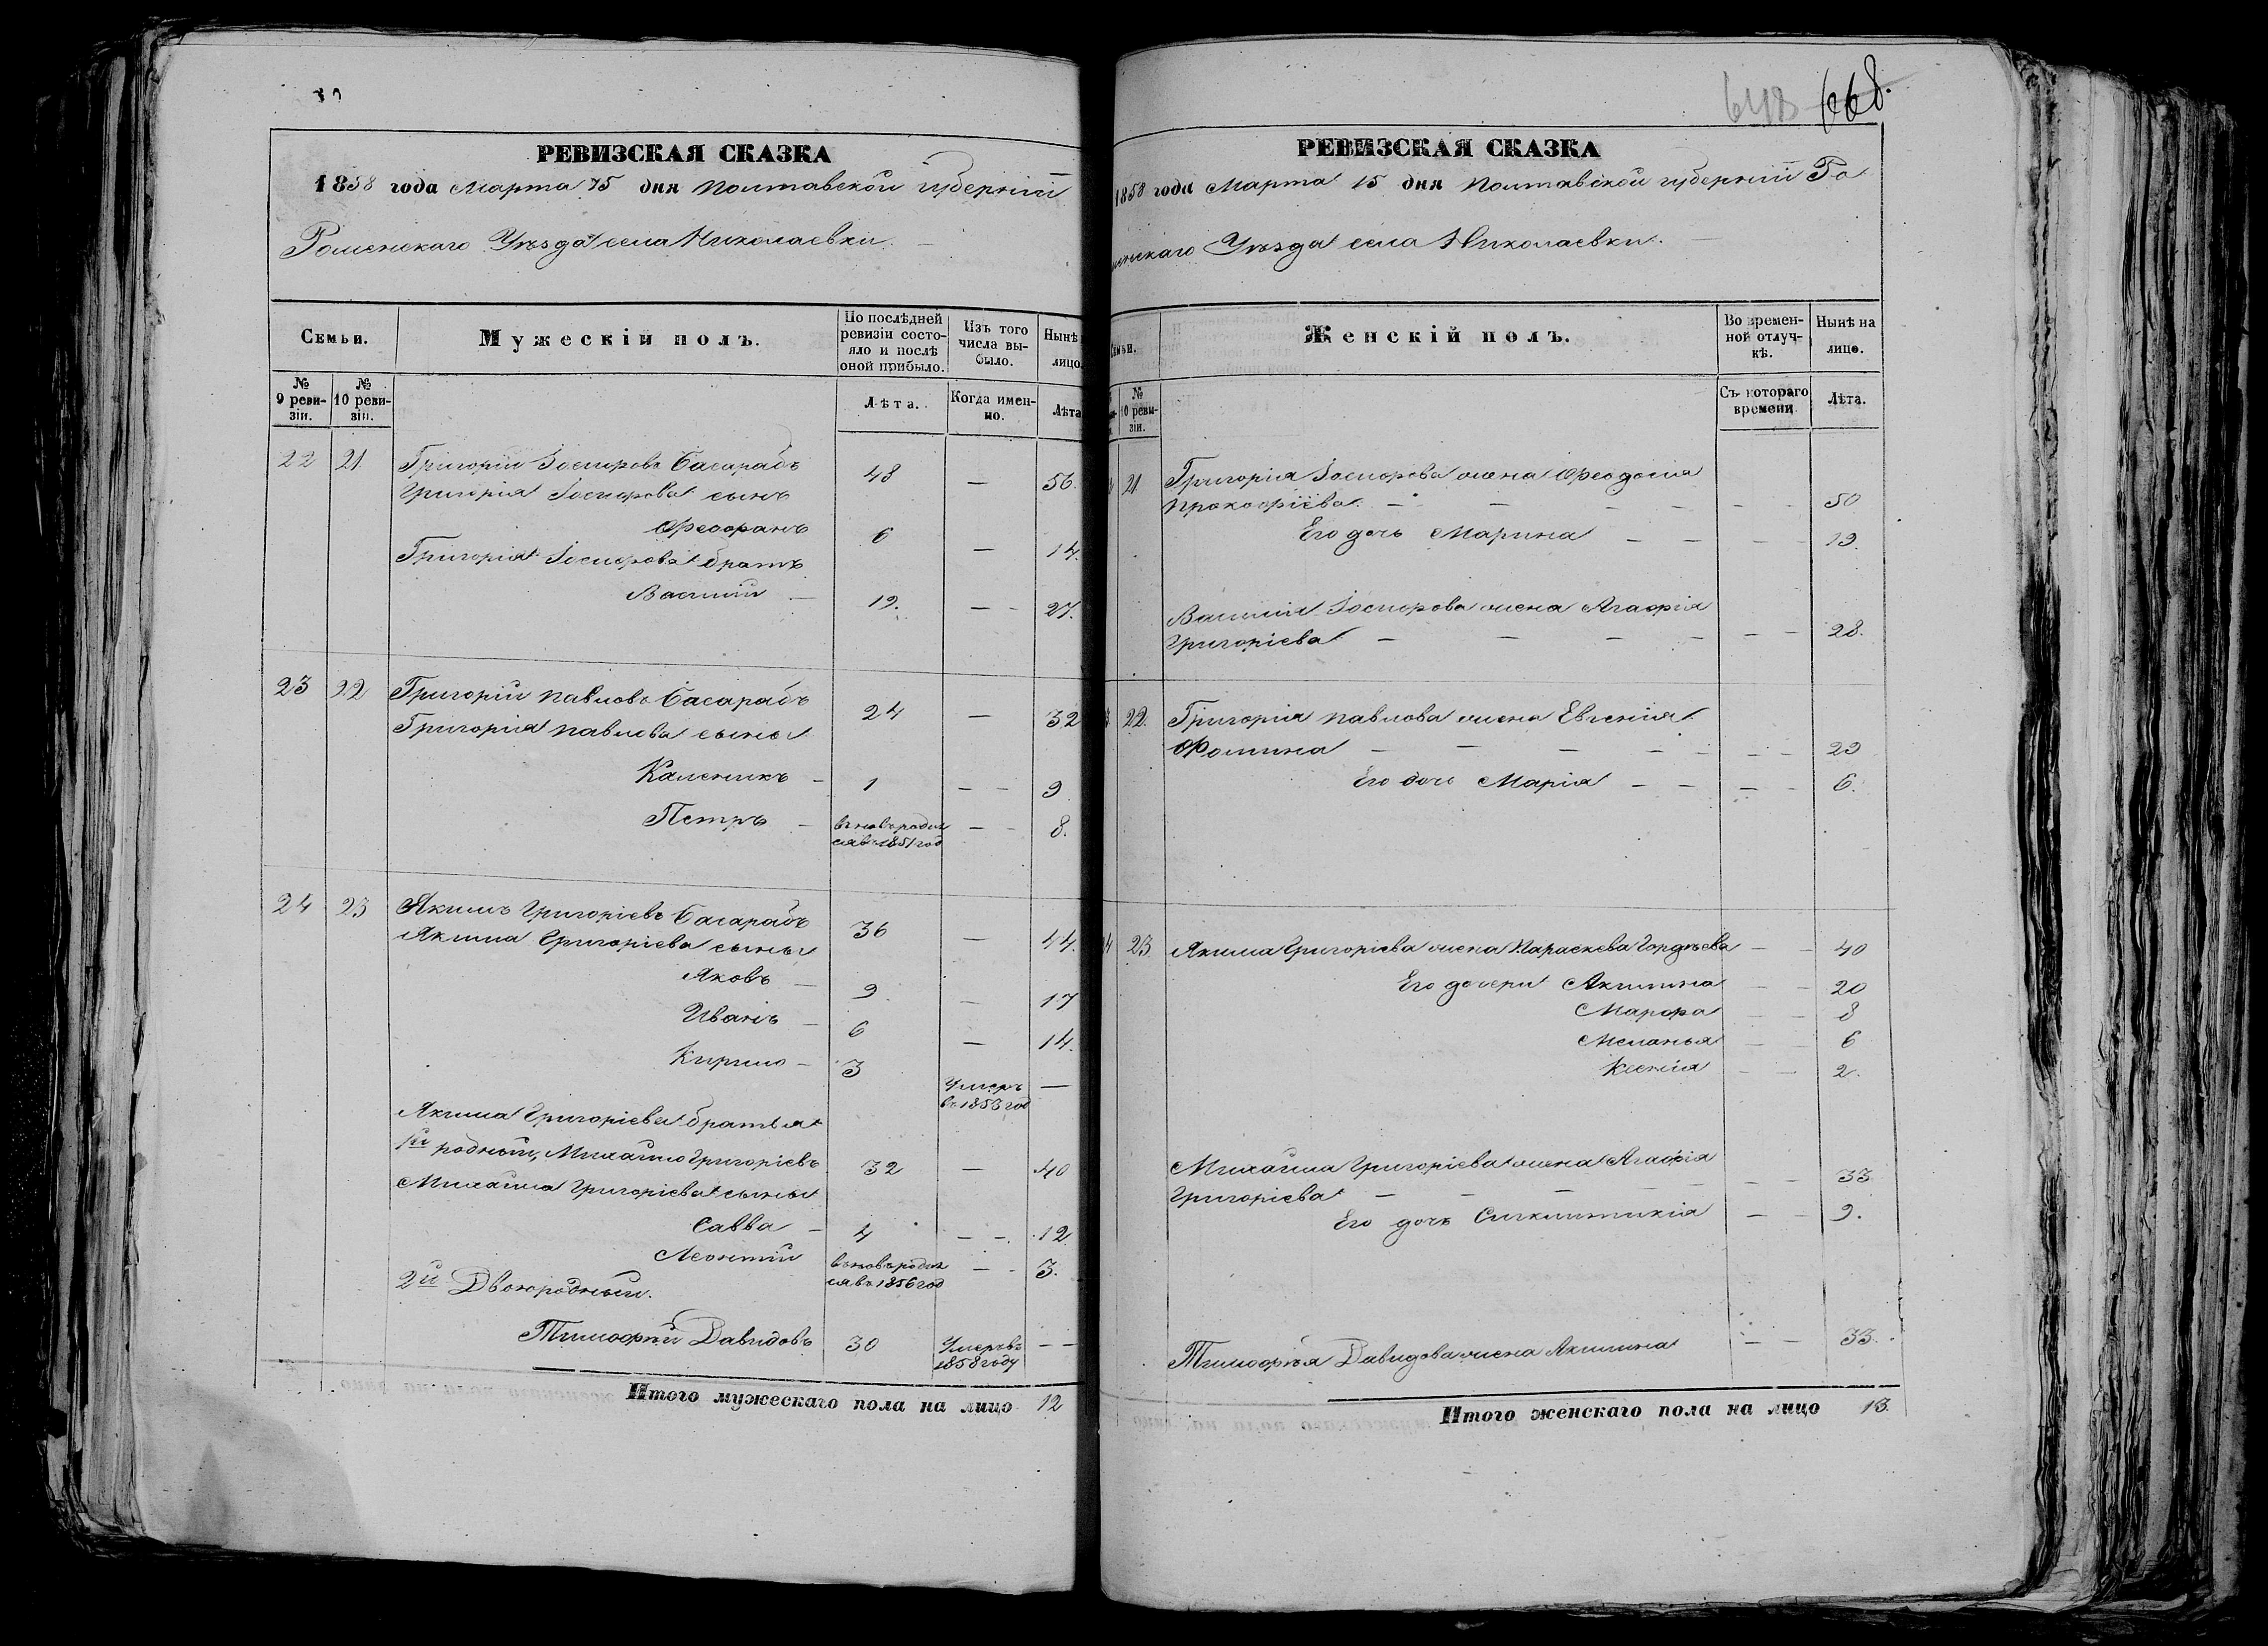 648 668.
РЕВИЗСКАЯ СКАЗКА
1858 года Марта 15 дня Полтавской губерніи
Роменскаго Уѣзда села Николаевки.
Семьи.
Мужескій полъ.
По послѣдней ревизіи состояло и послѣ оной прибыло.
Изъ того числа выбыло.
Нынѣ лицо
№ 9 ревизіи.
№ 10 ревизіи.
Лѣта.
Когда именно.
Лѣта
22 21 Григорій Іосифовъ Басарабъ 48 — 56.
Григорія Іосифова сынъ
Феофанъ 6 — 14.
Григорія Іосифова братъ
Василій — 19. — 27.
23 22 Григорій Павловъ Басарабъ 24 — 32
Григорія Павлова сыны
Каленикъ — 1 — 9
Петръ — вновь родился въ 1851 год — 8.
24 23 Якимъ Григоріевъ Басарабъ 36 — 44.
Якима Григоріева сыны
Яковъ — 9. — 17
Иванъ — 6 — 14.
Кирило — 3 Умеръ въ 1853 год —
Якима Григоріева братья
1й родный, Михайло Григоріевъ 32 — 40
Михайла Григоріева сыны
Савва — 4 — 12
Леонтій вновь родился въ 1856 год — 3.
2й Двоюродный.
Тимофѣй Давидовъ 30 Умеръ въ 1858 году —
Итого мужескаго пола на лицо 12
РЕВИЗСКАЯ СКАЗКА
1858 года Марта 15 дня Полтавской губерніи Ро
менскаго Уѣзда села Николаевки.
Семьи.
Женскій полъ.
Во временной отлучкѣ.
Нынѣ на лицо.
№ 10 ревизіи.
Съ котораго времени
Лѣта.
21 Григорія Іосифова жена Феодосія
Прокофіева. — 50
Его дочь Марина — 19.
Василія Іосифова жена Агафія
Григоріева — 28.
22. Григорія Павлова жена Евгенія
Фомина — 29
Его дочь Марія — 6.
23 Якима Григоріева жена Параскева Гордѣева — 40
Его дочери Акилина — 20
Марфа — 8
Меланья — 6
Ксенія — 2.
Михайла Григоріева жена Агафія
Григоріева — 33
Его дочь Синклитикія — 9.
Тимофѣя Давидова жена Акилина — 33.
Итого женскаго пола на лицо 13.